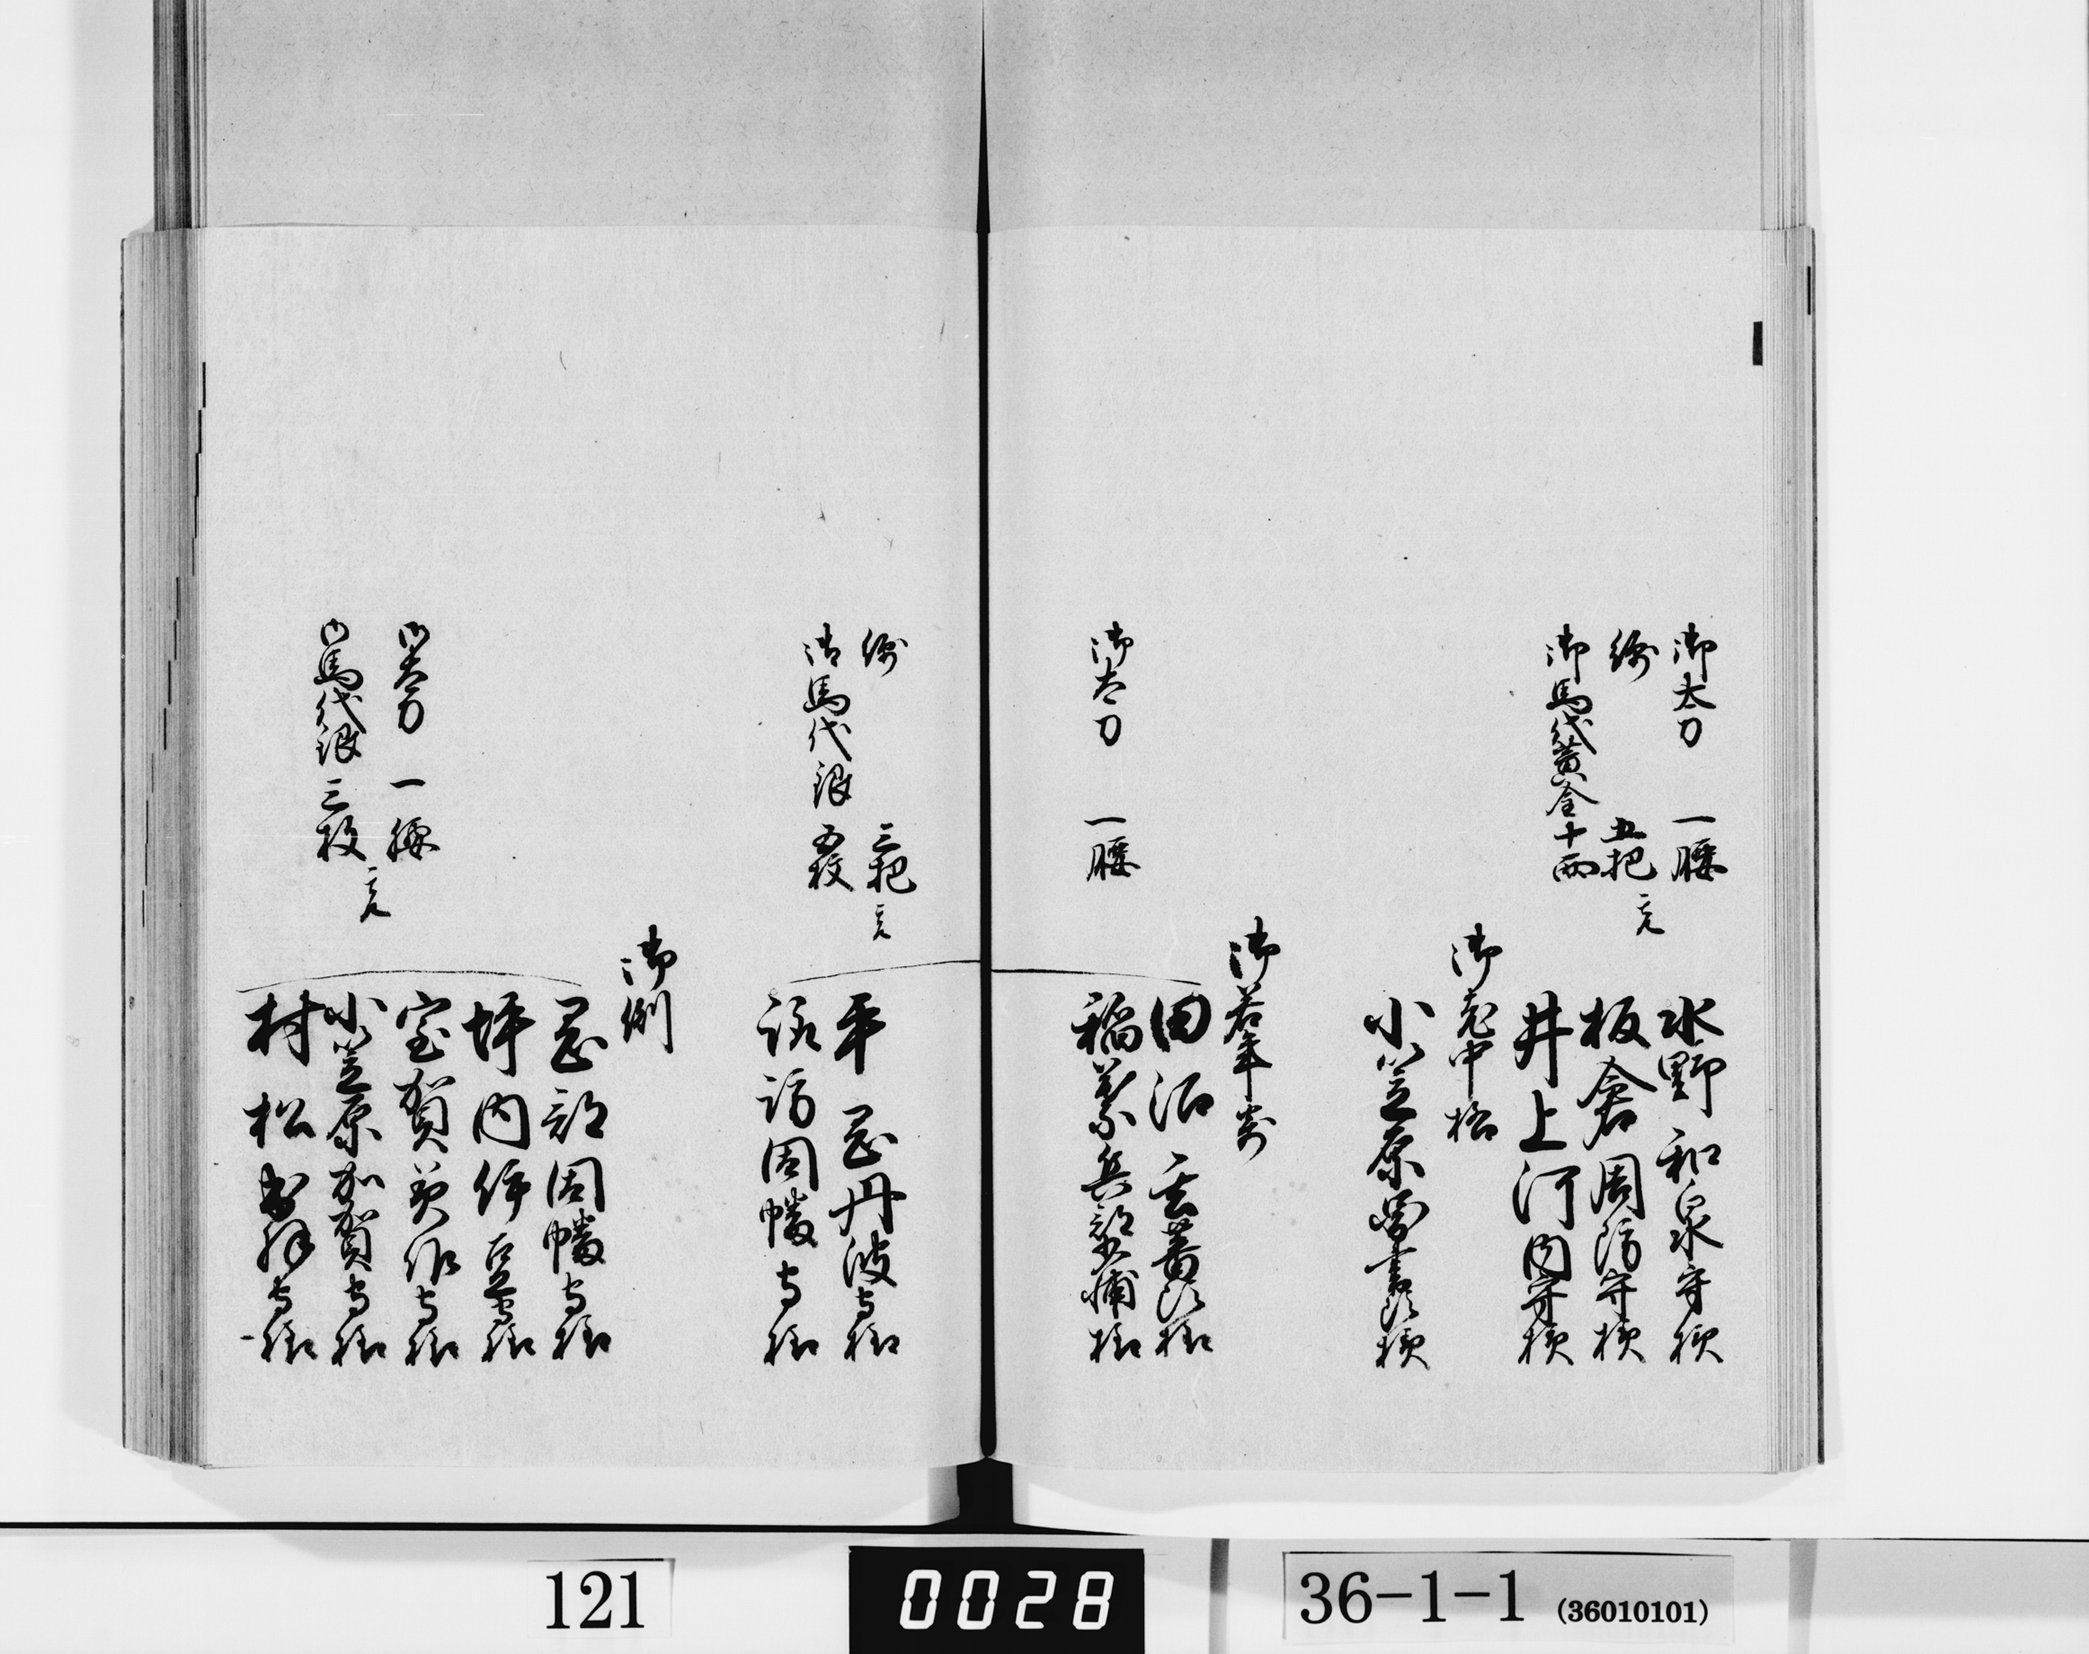 御太刀　一腰
綿　五把 ニ而
御馬代黄金十両
水野和泉守様
板倉周防守様
井上河内守様
御老中格
小笠原図書頭様
御若年寄
御太刀　一腰
田沼玄蕃頭様
稲葉兵部少輔様
綿　三把 ニ而
御馬代銀五枚
平岡丹波守様
諏訪因幡守様
御側
岡部因幡守様
坪内伊豆守様
室賀美作守様
小笠原加賀守様
村松出羽守様
御太刀　一腰
御馬代銀三枚
121
0028
36-1-1 (36010101)